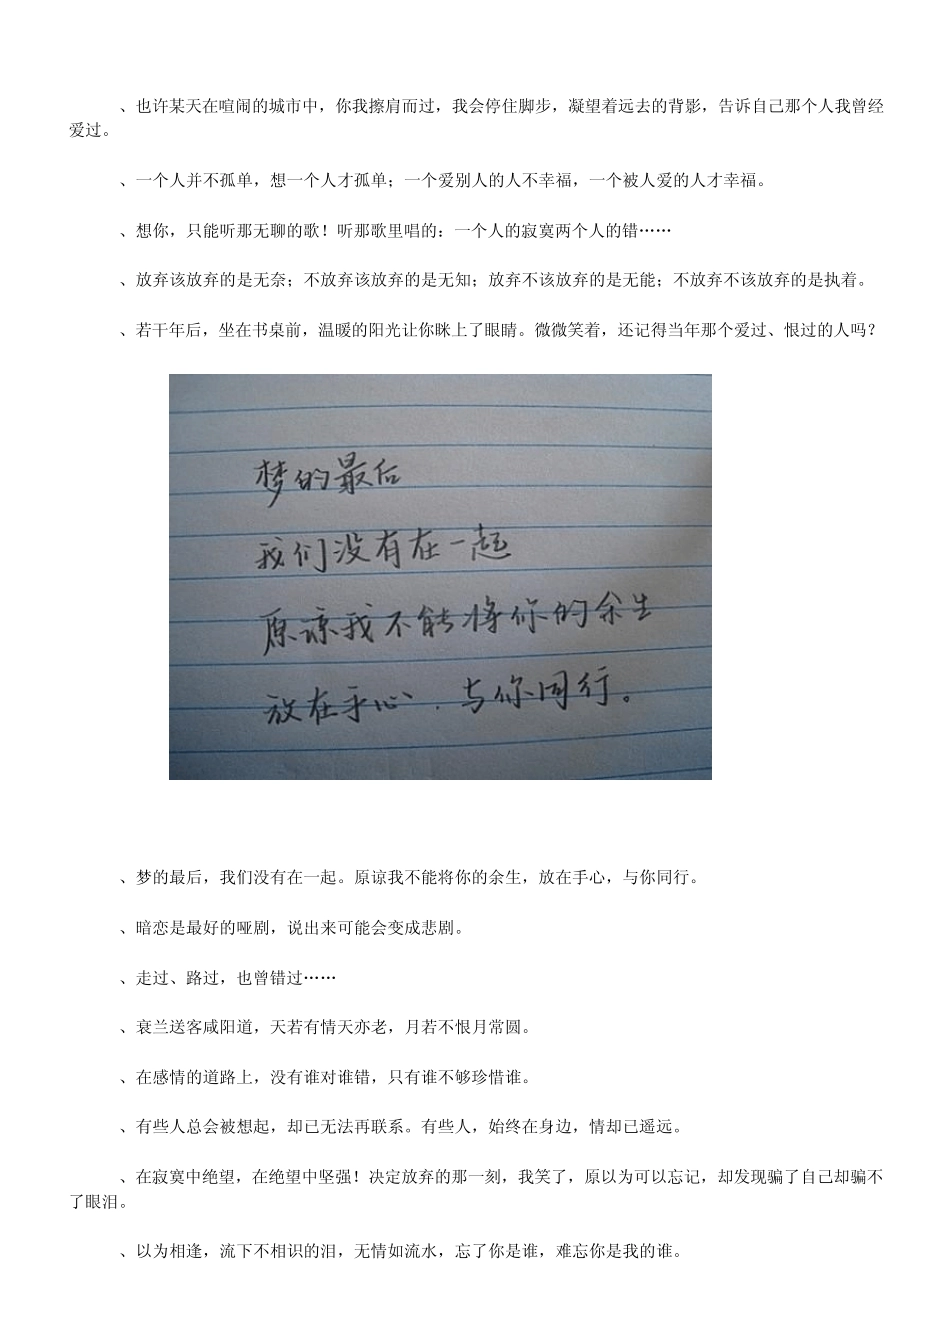 、也许某天在喧闹的城市中，你我擦肩而过，我会停住脚步，凝望着远去的背影，告诉自己那个人我曾经
爱过。
、一个人并不孤单，想一个人才孤单；一个爱别人的人不幸福，一个被人爱的人才幸福。
、想你，只能听那无聊的歌！听那歌里唱的：一个人的寂寞两个人的错……
、放弃该放弃的是无奈；不放弃该放弃的是无知；放弃不该放弃的是无能；不放弃不该放弃的是执着。
、若干年后，坐在书桌前，温暖的阳光让你眯上了眼睛。微微笑着，还记得当年那个爱过、恨过的人吗？
梦的最后
我们没有在一起
原谅我不能将你的余生
放在手心、与你同行。
、梦的最后，我们没有在一起。原谅我不能将你的余生，放在手心，与你同行。
、暗恋是最好的哑剧，说出来可能会变成悲剧。
、走过、路过，也曾错过……
、衰兰送客咸阳道，天若有情天亦老，月若不恨月常圆。
、在感情的道路上，没有谁对谁错，只有谁不够珍惜谁。
、有些人总会被想起，却已无法再联系。有些人，始终在身边，情却已遥远。
、在寂寞中绝望，在绝望中坚强！决定放弃的那一刻，我笑了，原以为可以忘记，却发现骗了自己却骗不
了眼泪。
、以为相逢，流下不相识的泪，无情如流水，忘了你是谁，难忘你是我的谁。